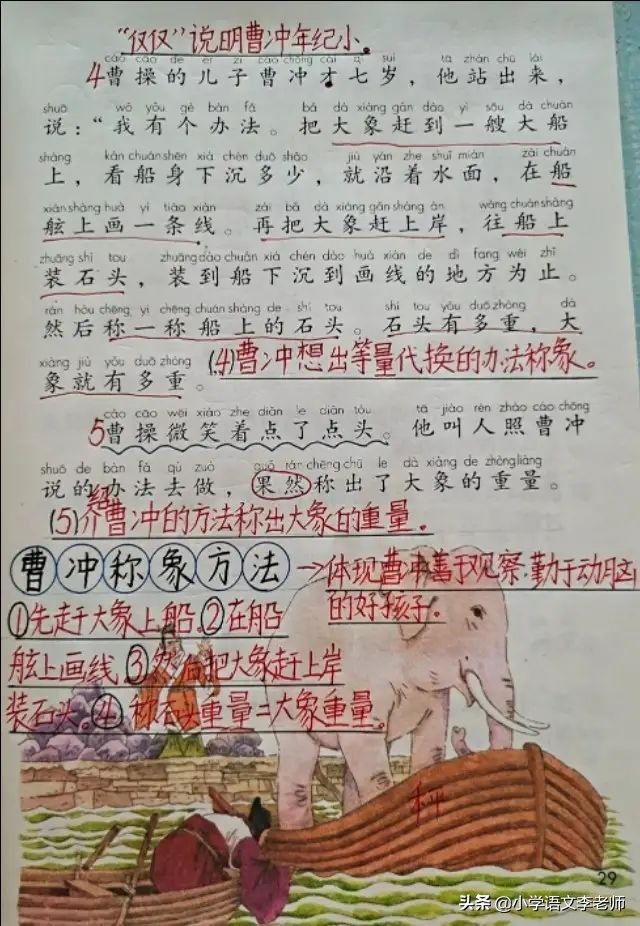 “仅仅”说明曹冲年纪小。
cáo cāo de ér zi cáo chōng cái qī suì tā zhàn chū lái
4曹操的儿子曹冲才七岁，他站出来，
shuō wǒ yǒu gè bàn fǎ bǎ dà xiàng gǎn dào yì sōu dà chuán
说：“我有个办法。把大象赶到一艘大船
shàng kàn chuán shēn xià chén duō shǎo jiù yán zhe shuǐ miàn zài chuán
上，看船身下沉多少，就沿着水面，在船
xián shàng huà yì tiáo xiàn zài bǎ dà xiàng gǎn shàng àn wǎng chuán shàng
舷上画一条线。再把大象赶上岸，往船上
zhuāng shí tou zhuāng dào chuán xià chén dào huà xiàn de dì fang wéi zhǐ
装石头，装到船下沉到画线的地方为止。
rán hòu chēng yi chēng chuán shàng de shí tou shí tou yǒu duō zhòng dà
然后称一称船上的石头。石头有多重，大
xiàng jiù yǒu duō zhòng
象就有多重。
(4)曹冲想出等量代换的办法称象。
cáo cāo wēi xiào zhe diǎn le diǎn tóu tā jiào rén zhào cáo chōng
5曹操微笑着点了点头。他叫人照曹冲
shuō de bàn fǎ qù zuò guǒ rán chēng chū le dà xiàng de zhòng liàng
说的办法去做，果然称出了大象的重量。
(5)曹冲的方法称出大象的重量。
曹冲称象方法→体现曹冲善于观察、勤于动脑
的好孩子。
①先赶大象上船.②在船
舷上画线.③然后把大象赶上岸
装石头。④称石头重量=大象重量。
秤
29
头条 @小学语文李老师